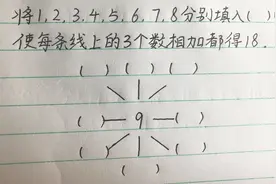 将1,2,3,4,5,6,7,8分别填入( )
使每条线上的3个数相加都得18.
( ) ( ) ( )
( ) — 9 — ( )
( ) ( ) ( )